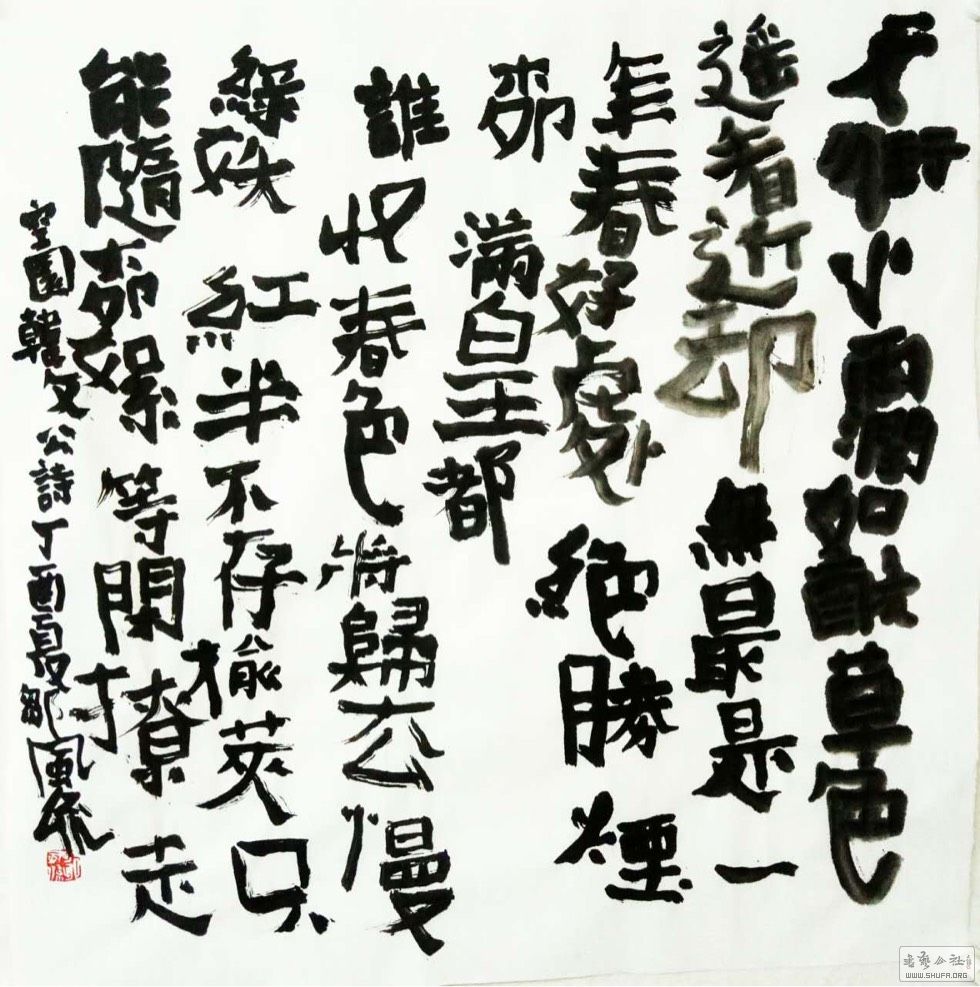 天街小雨潤如酥草色
遥看近却無最是一
年春好處絕勝煙
柳滿皇都
誰收春色將歸去慢
綠妖紅半不存榆莢只
能隨柳絮等閑撩走
空園韓文公詩丁酉夏鄒風
公社
WWW.SHUFA.ORG